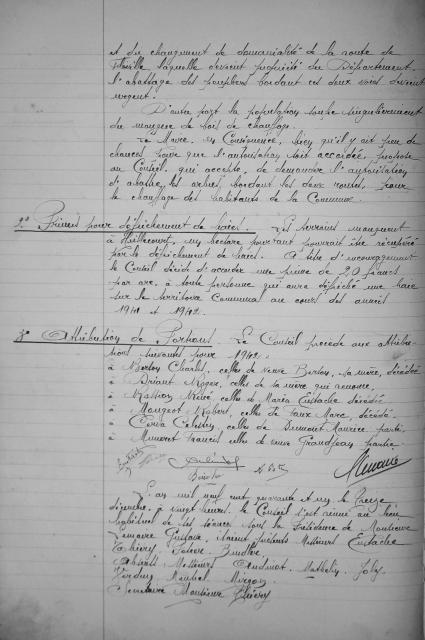 et du changement de domanialité de la route de
Fléville laquelle devient propriété du Département,
l'abattage des peupliers bordant ces deux voies devient
urgent.
D'autre part la population souffre singulièrement
du manque de bois de chauffage.
Le Maire, en Conséquence, bien qu'il y ait peu de
chances pour que l'autorisation soit accordée, propose
au Conseil, qui accepte, de demander l'autorisation
d'abattre les arbres bordant les deux routes, pour
le chauffage des habitants de la Commune.
2° Primes pour défrichement de haies. Les terrains manquent
à Heillecourt, un hectare pourtant pourrait être récupéré
par le défrichement de haies. A titre d'encouragement
le Conseil décide d'accorder une prime de 20 francs
par are, à toute personne qui aura défriché une haie
sur le territoire Communal au cours des années
1941 et 1942.
3° Attribution de Portions. Le Conseil procède aux attribu-
tions suivantes pour 1942:
à Berton Charles, celles de Veuve Berton, sa mère, décédée
à Briant Roger, celles de sa mère qui renonce,
à Masson René, celles de Maria Eustache décédée
à Mougeot Robert, celles de Faux Marc, décédé.
à Célestin, celles de Maurice parti.
à Francis celles de veuve Grandjean partie
L'an mil neuf cent quarante et un le Treize
décembre, à vingt heures, le Conseil s'est réuni au lieu
habituel de ses séances sous la Présidence de Monsieur
Lemoine Gustave, étaient présents Messieurs Eustache
Thiéry
Absents Messieurs Mathelin, Joly,
Secrétaire Monsieur Thiéry